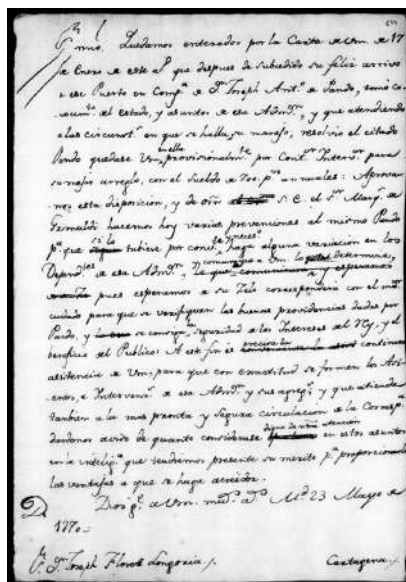 Sr. mio. Quedamos enterados por la Carta de Vm. de 17
de Enero de este aº que despues de subcedido su feliz arrivo
a ese Puerto en Compª de Dn. Joseph Antº de Pando, tomó co-
nocimto. del estado, y asuntos de esa Admon. y que atendiendo
a las circunstas. en que se halla su manejo, resolvió el citado
Pando quedase Vm. en ella provisionalmte. por Contor. Intervor. para
su mejor arreglo, con el Sueldo de 700. ps. annuales: Aprova-
mos esta disposicion, y de orn. S.E. el Sr. Marqs. de
Grimaldi hacemos hoy varias prevenciones al mismo Pando
pª que si lo tubiere por convte. haga alguna variacion en los
Dependtes. de esa Admon. y comunique a Vm. lo determine,
pues esperamos de su Zelo corresponderá con el mor.
cuidado para que se verifiquen las buenas providencias dadas por
Pando, y se consiga seguridad a los Intereses del Rey, y el
beneficio del Publico: A este fin es precisa la continua
asistencia de Vm. para que con exactitud se formen los Asi-
entos, e Intervenn. de esa Admon. y sus agregs. y que atienda
tambien a la mas pronta y segura circulacion de la Corresp.
dandonos aviso de quanto considerase digno de ntra. atencion en estos asuntos
en la inteligª que tendremos presente su merito pª proporcionarle
las ventajas a que se haga acreedor.
Dios gue. a Vm. ms. as. Md. 23 Mayo de
1770.
Sr. Dn. Joseph Florez Longoria /. Cartagena /.